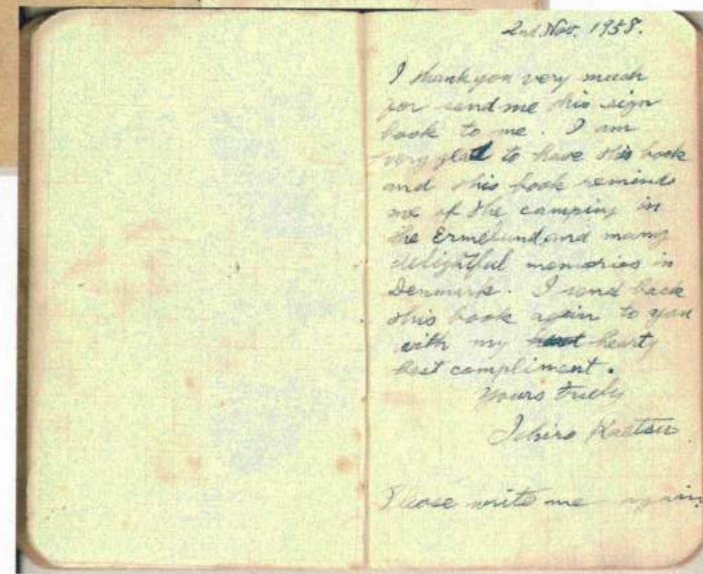 2nd. Nov. 1958.
I thank you very much
for send me this sign
book to me. I am
very glad to have this book
and this book reminds
me of the camping in
the Ermelund and many
delightful memories in
Denmark. I send back
this book again to you
with my hearty
best compliment.
Yours truely
Ichiro Kaetsu
Please write me again